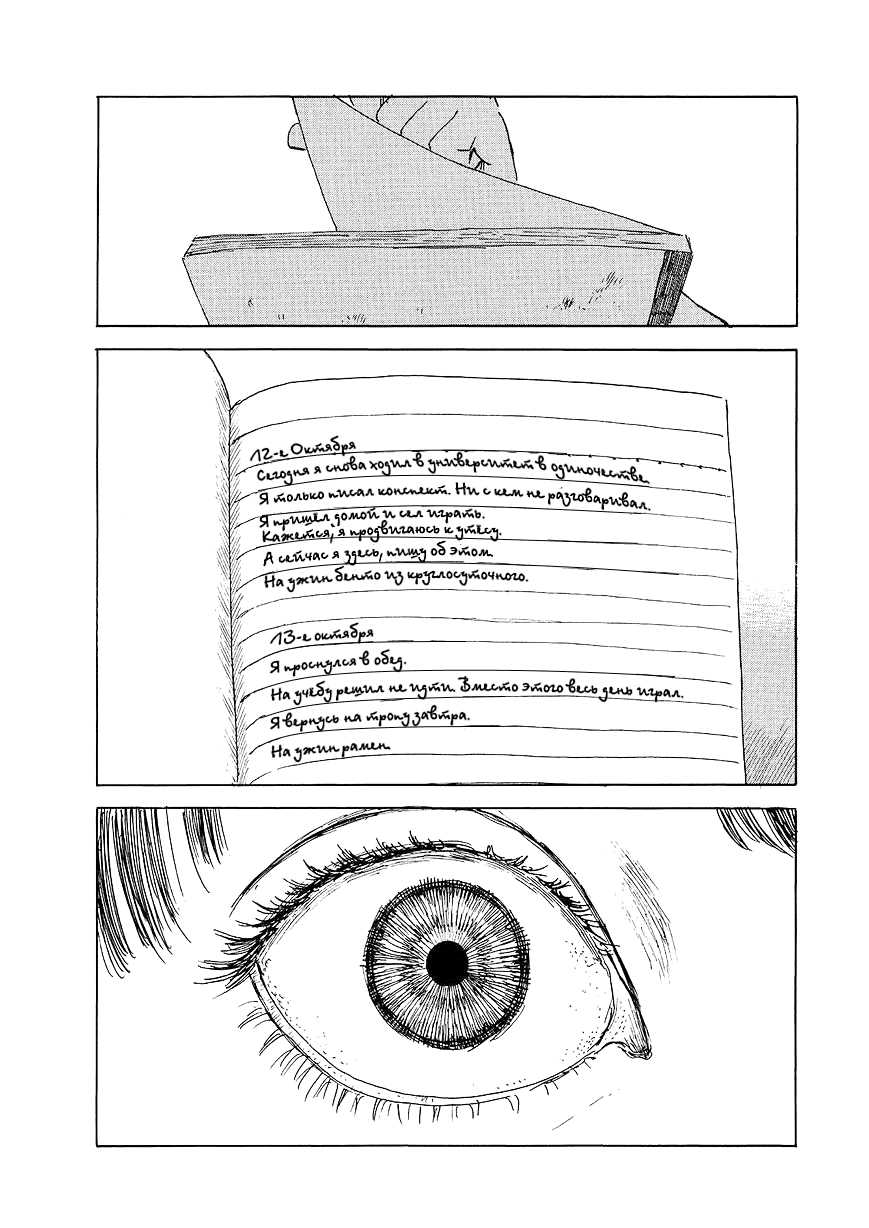 12-е Октября
Сегодня я снова ходил в университет в одиночестве.
Я только писал конспект. Ни с кем не разговаривал.
Я пришёл домой и сел играть.
Кажется, я продвигаюсь к утёсу.
А сейчас я здесь, пишу об этом.
На ужин бенто из круглосуточного.
13-е октября
Я проснулся в обед.
На учёбу решил не идти. Вместо этого весь день играл.
Я вернусь на тропу завтра.
На ужин рамен.